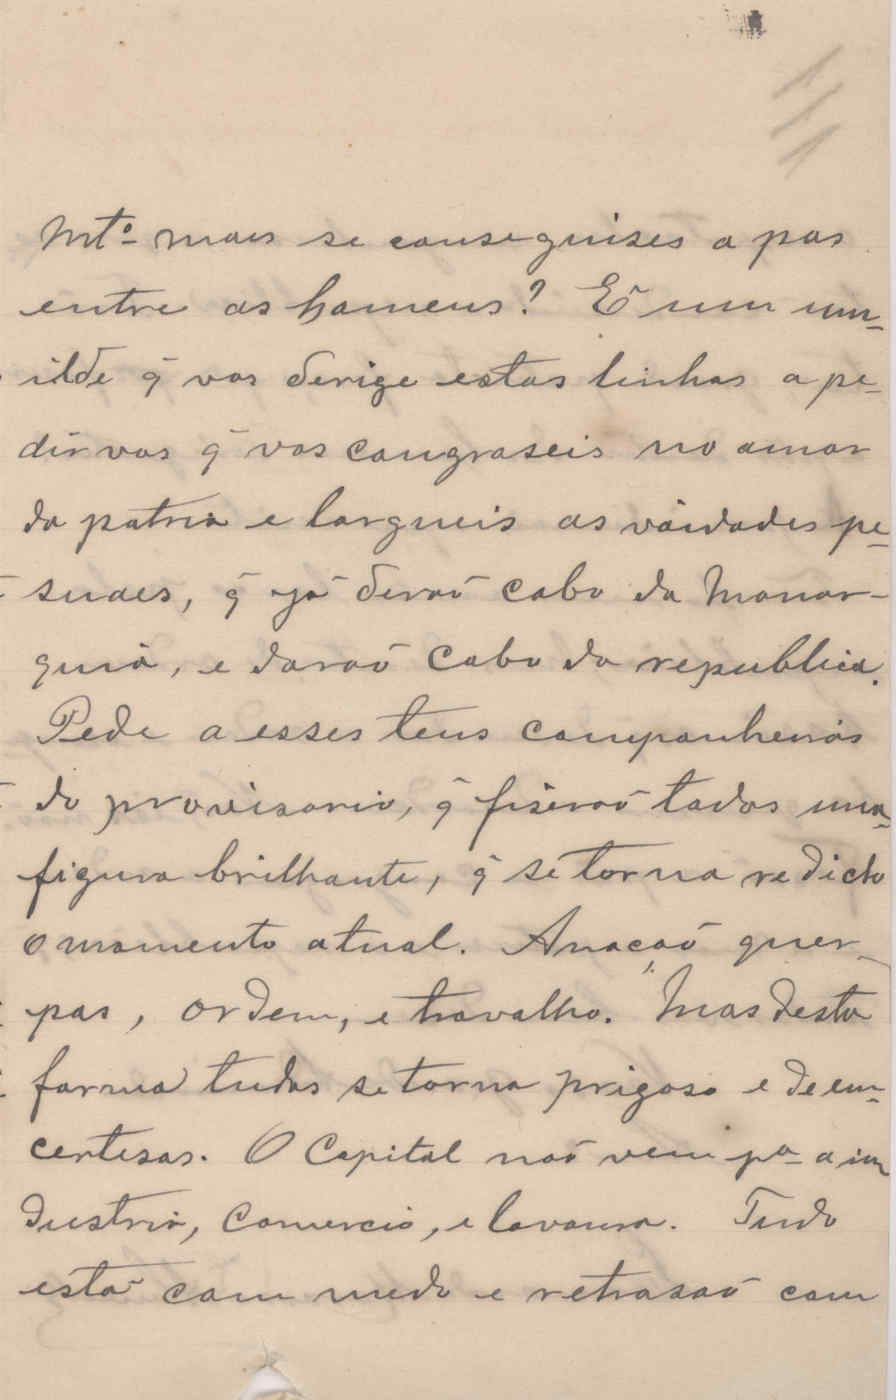 Mtº mais se conseguises a pas
entre os homens? E um um-
ilde q̃ vos derige estas linhas a pe-
dirvos q̃ vos congraseis no amor
da patria e largueis as vaidades pe-
suaes, q̃ já deraõ cabo da Monar-
quia, e daraõ cabo da republica.
Pede a esses teus companheiros
do provisorio, q̃ fiseraõ todos uma
figura brilhante, q̃ se torna redicto
o momento atual. Anaçaõ quer
pas, ordem, e travalho. Mas desta
forma tudos se torna prigoso e de em-
certesas. O Capital naõ vem pª a in
dustria, Comercio, e lavoura. Tudo
está com medo e retrasaõ com